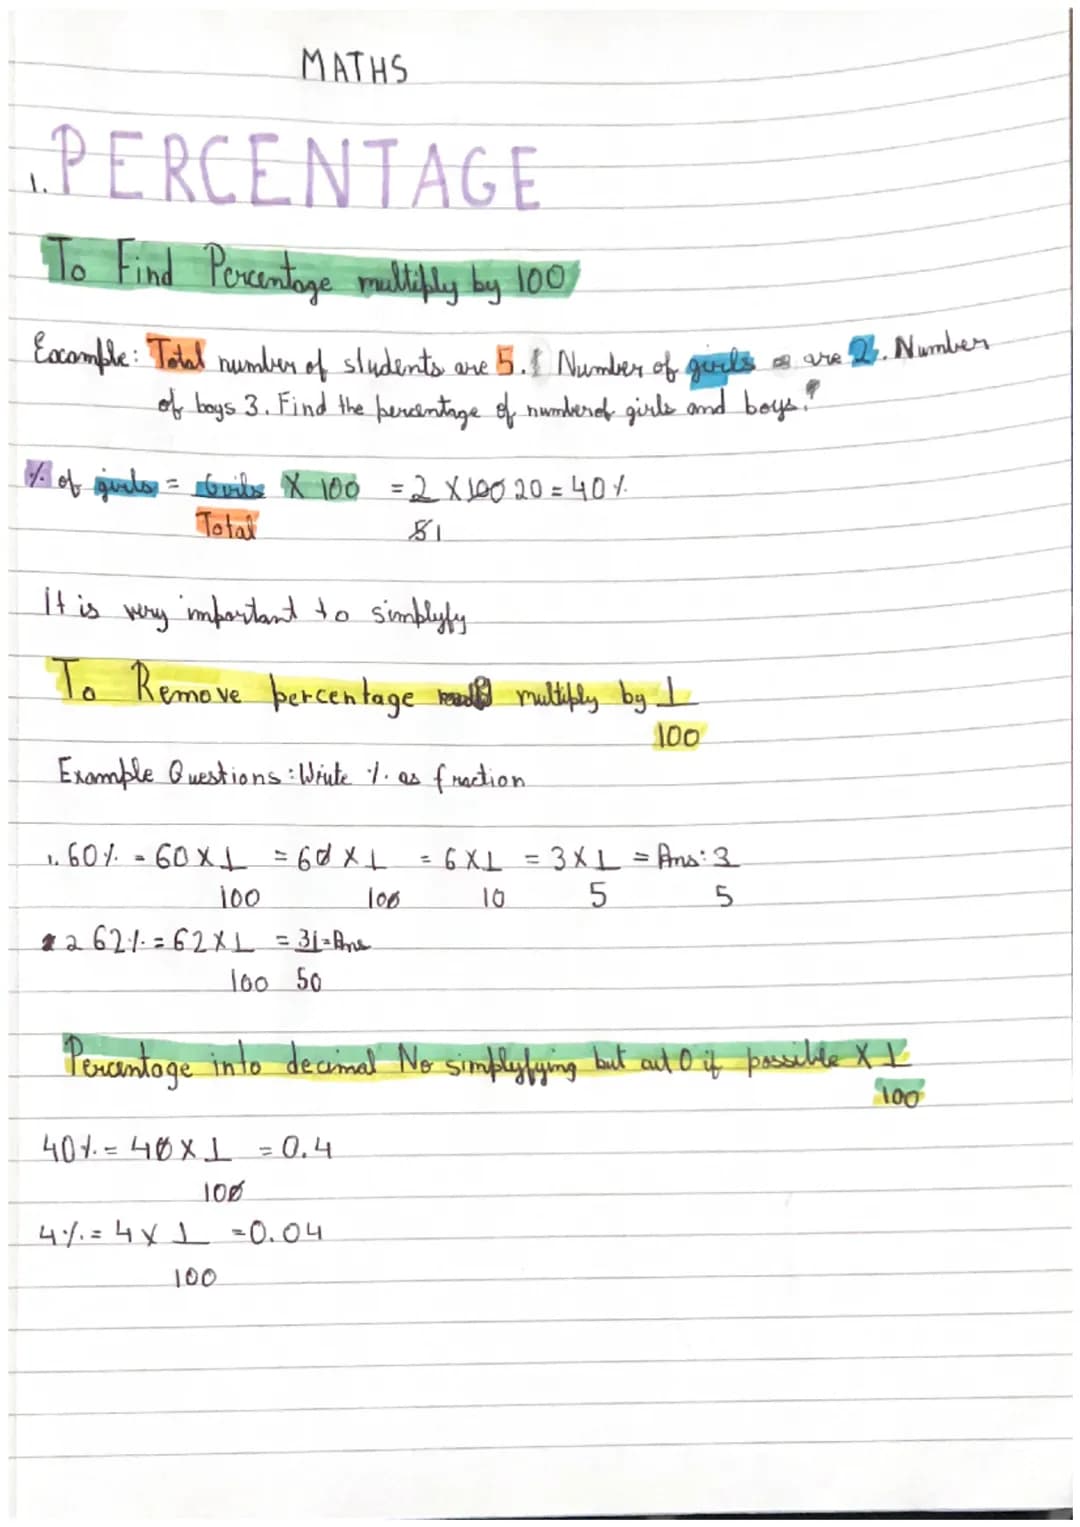 MATHS
1. PERCENTAGE
To Find Percentage multiply by 100
Example: Total number of students are 5. Number of girls are 2. Number
of boys 3. Find the percentage of number of girls and boys?
% of girls = Girls X 100 = 2 X 100 20 = 40 %
Total 51
It is very important to simplyfy
To Remove percentage multiply by 1
100
Example Questions: Write % as fraction
1. 60% = 60 X 1 = 60 X 1 = 6 X 1 = 3 X 1 = Ans: 3
100 100 10 5 5
2 62% = 62 X 1 = 31 = Ans
100 50
Percentage into decimal No simplyfying but cut 0 if possible X 1
100
40% = 40 X 1 = 0.4
100
4% = 4 X 1 = 0.04
100